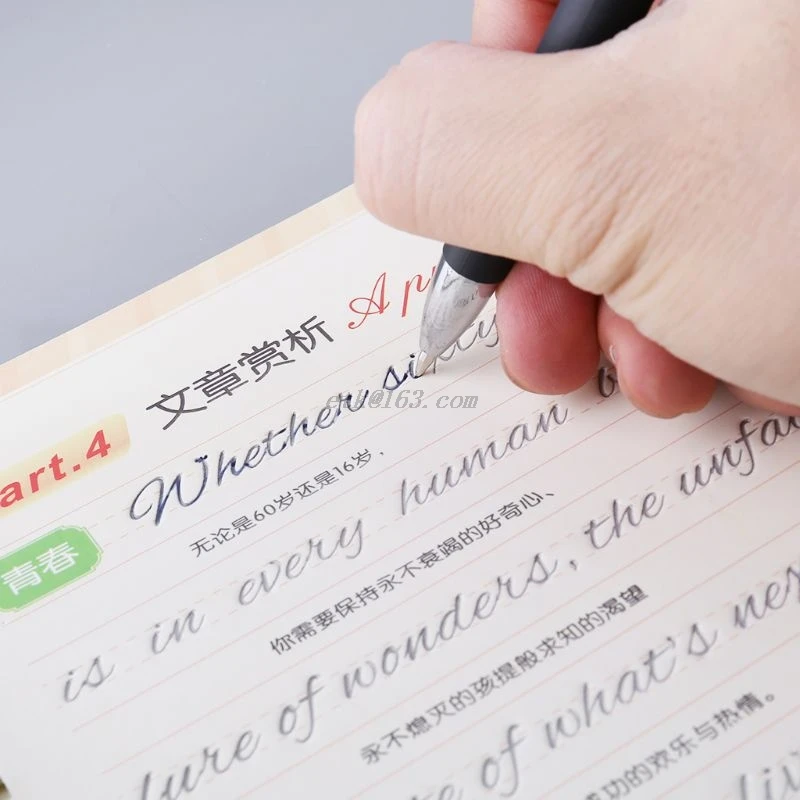 art.4 文章赏析 Ap
Whether sixty
青春
无论是60岁还是16岁，
is in every human
你需要保持永不衰竭的好奇心、
lure of wonders, the unfai
永不熄灭的孩提般求知的渴望
of what's nex
成功的欢乐与热情。
eak@163.com